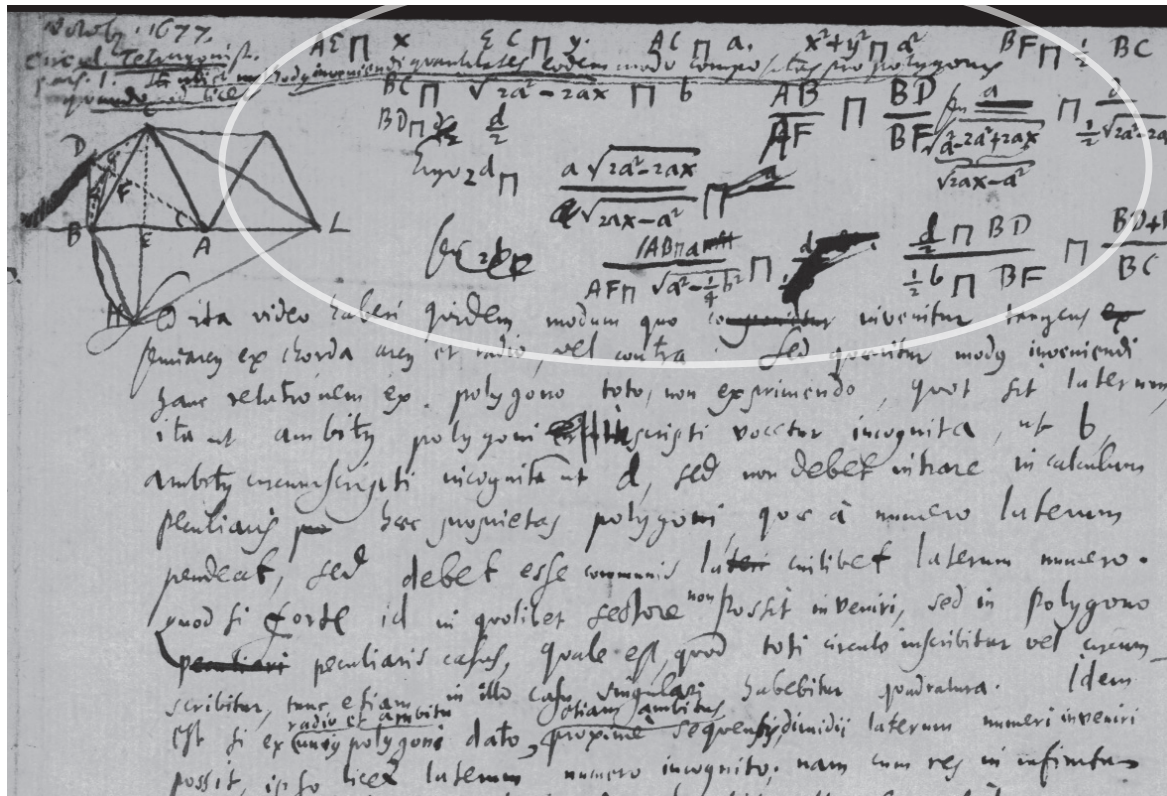 1677.
circul. Tetragonist.
pars. 1.
AE ⊓ x EC ⊓ y. AC ⊓ a. x²+y² ⊓ a² BF ⊓ ½ BC
modus inveniendi quantitates eodem modo compositas pro polygonis
BC ⊓ √2a²-2ax ⊓ b AB/AF ⊓ BD/BF
BD ⊓ d/2
Ergo 2d ⊓ a√2a²-2ax / √2ax-a² ⊓
AB ⊓ a / AF ⊓ √a²-¼b² ⊓ d/2 ⊓ BD / ½b ⊓ BF ⊓
D B E A L
ita video haberi quidem modum quo invenitur tangens
semiarcus ex chorda arcus et radio, vel contra. Sed quaeritur modus inveniendi
hanc relationem ex polygono toto, non exprimendo, quot sit laterum
ita ut ambitus polygoni inscripti vocetur incognita, ut b,
ambitus circumscripti incognita ut d, sed non debet intrare in calculum
peculiaris haec proprietas polygoni, quae à numero laterum
pendeat, sed debet esse communis cuilibet laterum numero.
quod si forte id in quolibet sectore non possit inveniri, sed in polygono
peculiaris casus, quale est, quod toti circulo inscribitur vel circum-
scribitur, tunc etiam in illo casu singulari habebitur quadratura. Idem
est si ex radio et ambitu unius polygoni dato, etiam ambitus proxime sequentis, dimidii laterum numeri inveniri
possit, ipso licet laterum numero incognito; nam cum res in infinitum